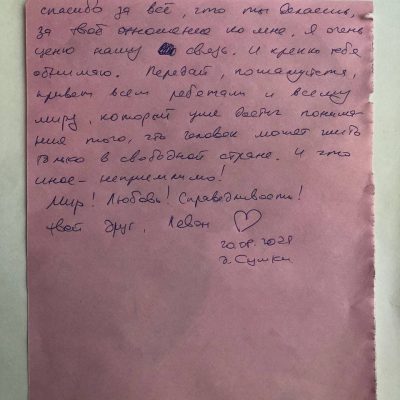 спасибо за всё, что ты делаешь,
за твоё отношение ко мне. Я очень
ценю нашу связь. И крепко тебя
обнимаю. Передай, пожалуйста,
привет всем ребятам и всему
миру, который уже достиг понима-
ния того, что человек может жить
только в свободной стране. И что
иное - неприемлимо!
Мир! Любовь! Справедливость!
твой друг, Леван ♡